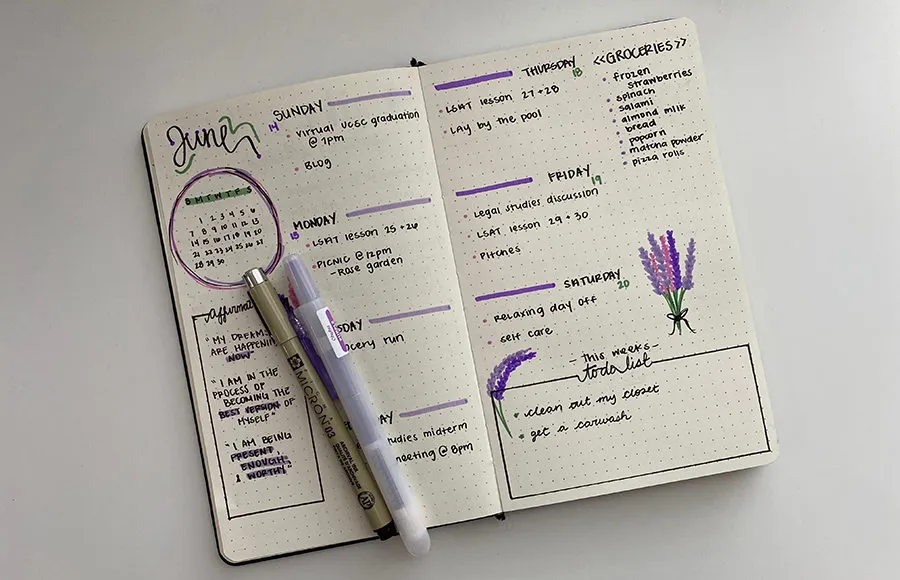 June
S M T W T F S
1 2 3 4 5 6
7 8 9 10 11 12 13
14 15 16 17 18 19 20
21 22 23 24 25 26 27
28 29 30
Affirmat
"MY DREAMS
ARE HAPPENING
NOW"
"I AM IN THE
PROCESS OF
BECOMING THE
BEST VERSION OF
MYSELF"
"I AM BEING
PRESENT,
ENOUGH,
& WORTHY"
SUNDAY
14
Virtual UCSC graduation
@ 1pm
BLOG
MONDAY
15
LSAT lesson 25 + 26
PICNIC @ 12pm
- Rose garden
SDAY
cery run
AY
udies midterm
meeting @ 8pm
MICRON 03
ARCHIVAL INK
THURSDAY
18
LSAT lesson 27 + 28
Lay by the pool
FRIDAY
19
Legal studies discussion
LSAT lesson 29 + 30
Pitches
SATURDAY
20
Relaxing day off
self care
<<GROCERIES>>
frozen
strawberries
spinach
salami
almond milk
bread
popcorn
matcha powder
pizza rolls
- This weeks -
to do list
clean out my closet
get a carwash